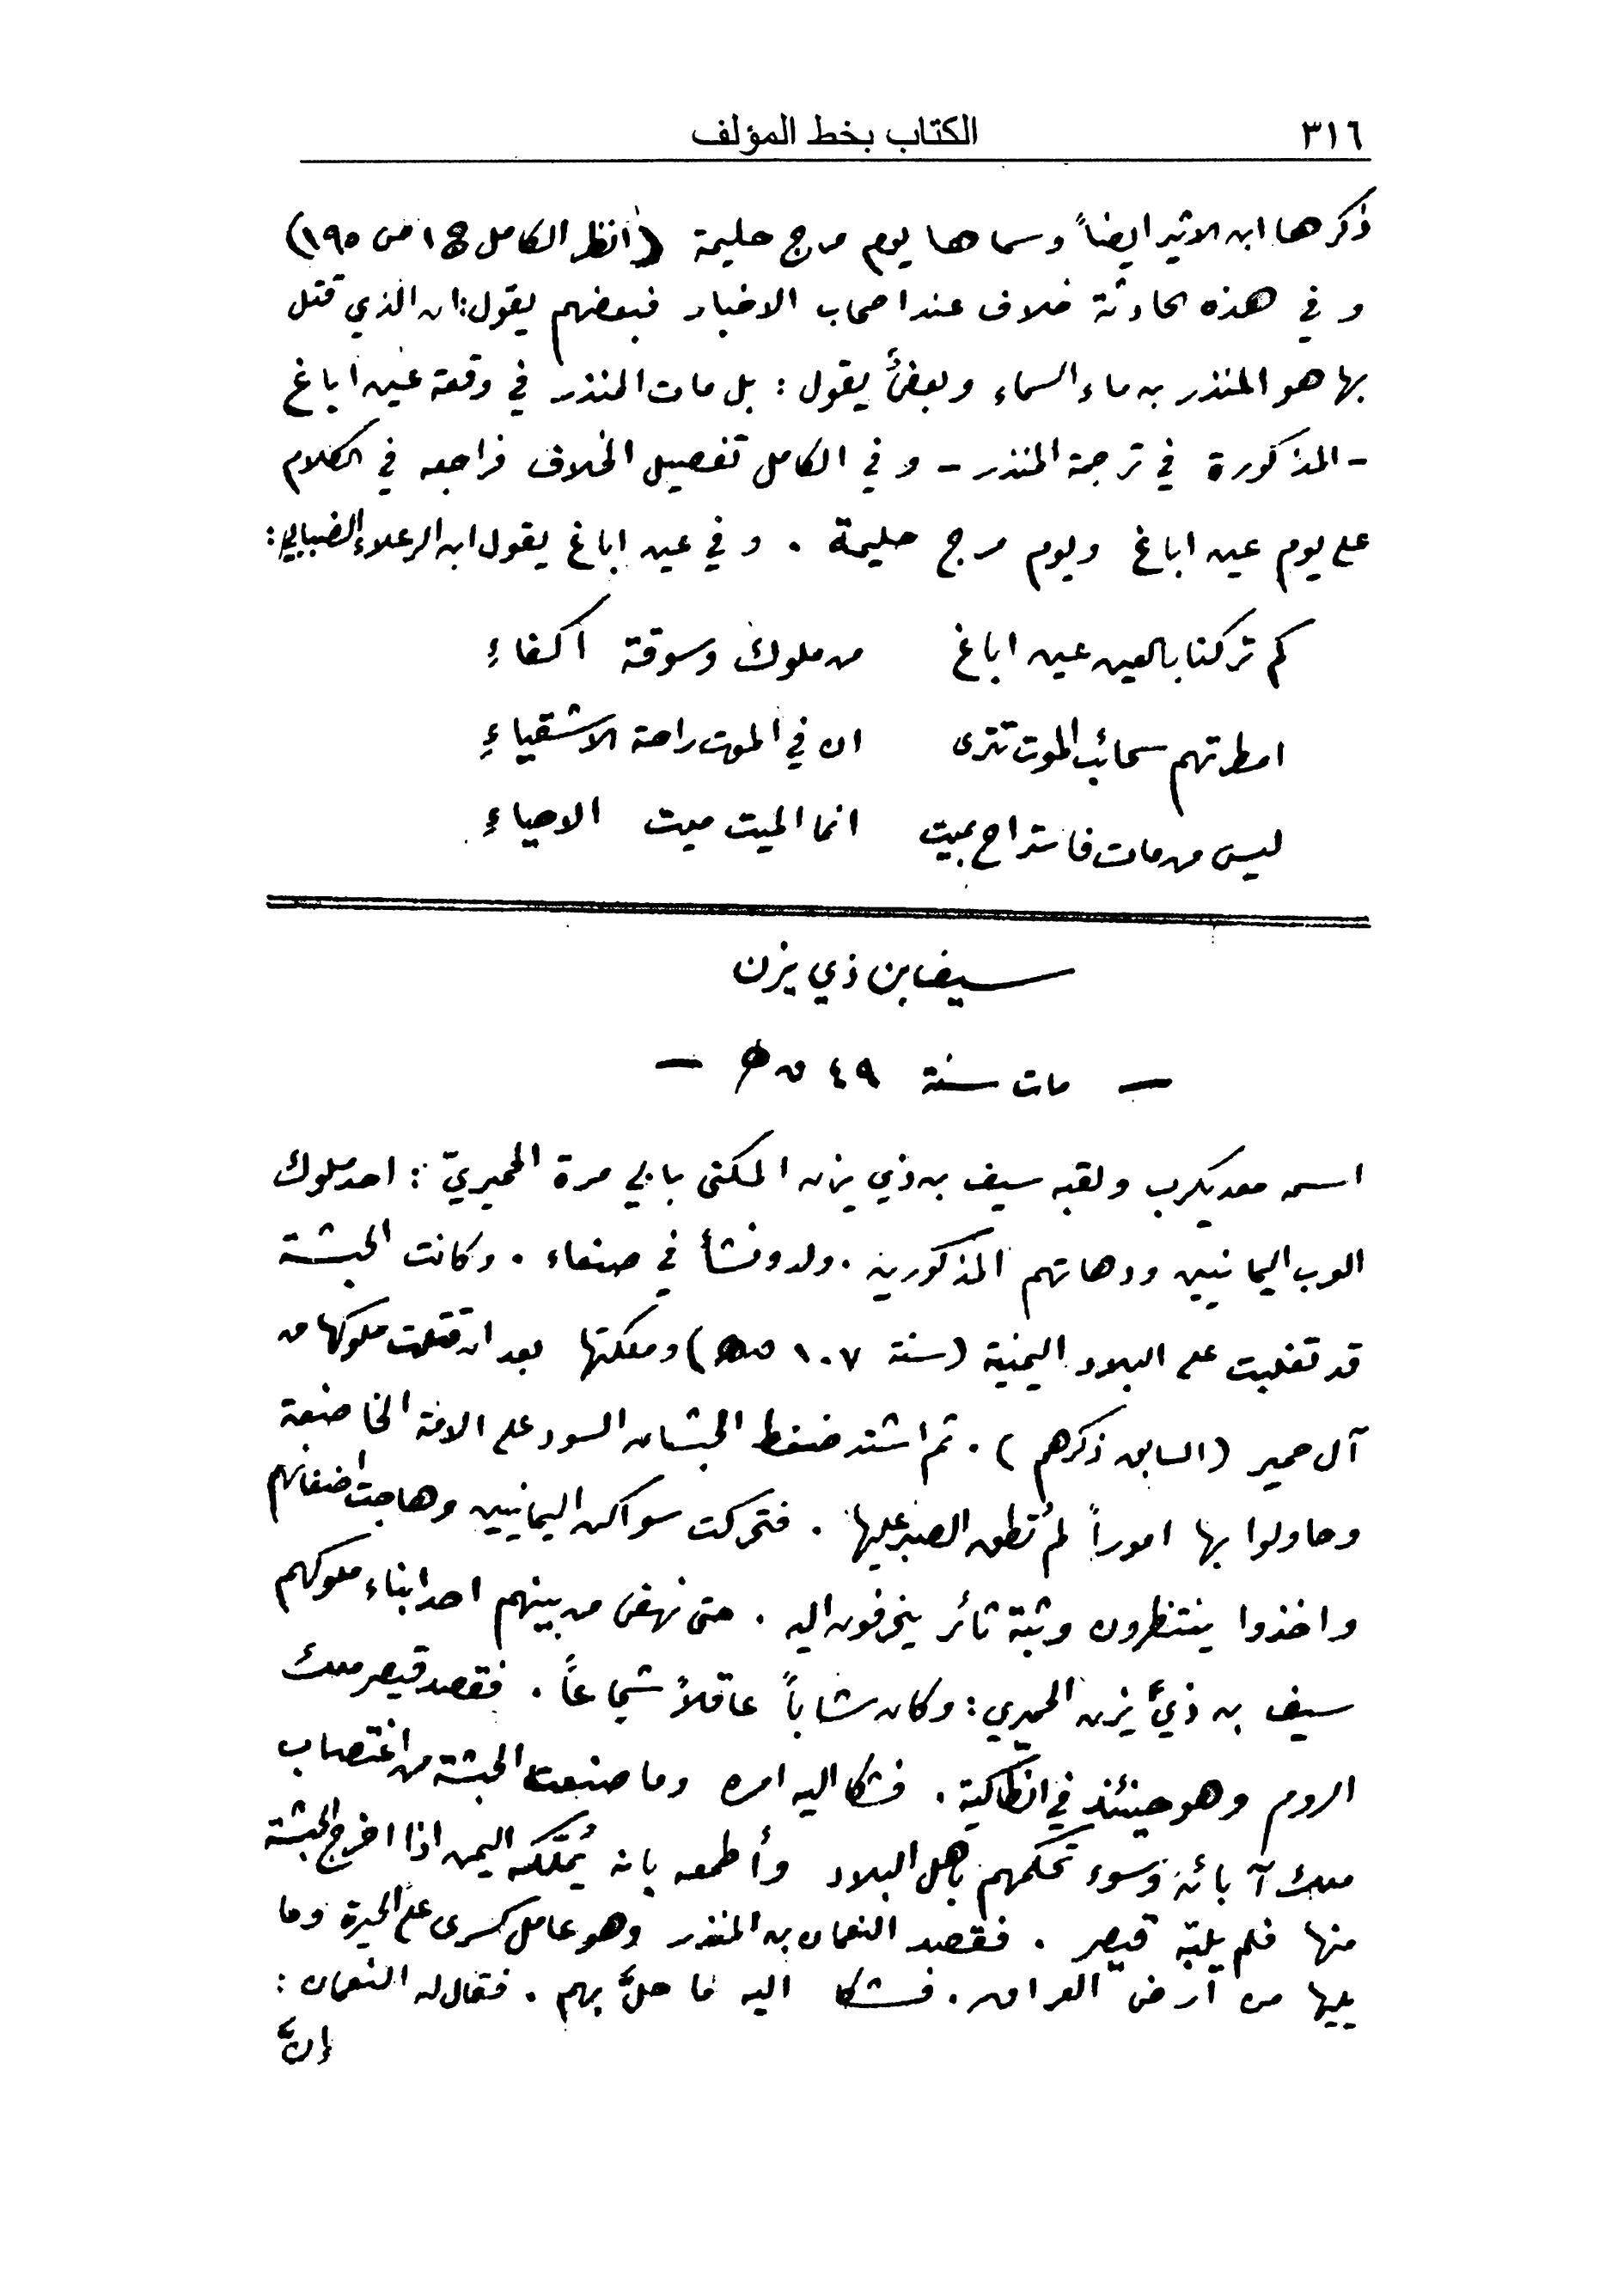 ٣١٦ الكتاب بخط المؤلف
ذكرها ابن الاثير ايضاً وسماها يوم مرج حليمة (انظر الكامل ج ١ ص ١٩٥)
وفي هذه الحادثة خلاف عند اصحاب الاخبار فبعضهم يقول: ان الذي قتل
بها هو المنذر بن ماء السماء وبعضٌ يقول: بل مات المنذر في وقعة عين اباغ
- المذكورة في ترجمة المنذر - وفي الكامل تفصيل الخلاف فراجعه في الكلام
على يوم عين اباغ ويوم مرج حليمة . وفي عين اباغ يقول ابن الرعلاء الضبابي:
كم تركنا بالعين عين اباغ من ملوك وسوقة اكفاءِ
امطرتهم سحائب الموت تترى ان في الموت راحة الاشقياءِ
ليس من مات فاستراح بميت انما الميت ميت الاحياءِ
سيف بن ذي يزن
— مات سنة ٤٩ ق ه —
اسمه معديكرب ولقبه سيف بن ذي يزن المكنى بابي مرة الحميريّ: احد ملوك
العرب اليمانيين ودهاتهم المذكورين . ولد ونشأ في صنعاء . وكانت الحبشة
قد تغلبت على البلاد اليمنية (سنة ١٠٧ ق ه) وملكتها بعد ان قتلت ملوكها من
آل حمير (السابق ذكرهم) . ثم اشتد ضغط الحبشان السود على الامة الخاضعة
وحاولوا بها اموراً لم تُطق الصبر عليها . فتحركت سواكن اليمانيين وهاجت اضغانهم
واخذوا ينتظرون وثبة ثائر ينحرفون اليه . حتى نهض من بينهم احد ابناء ملوكهم
سيف بن ذي يزن الحميري: وكان شاباً عاقلاً شجاعاً . فقصد قيصر ملك
الروم وهو حينئذ في انطاكية . فشكا اليه امره وما صنعت الحبشة من اغتصاب
ملك آبائه وسوء تحكمهم باهل البلاد وأطمعه بانه يُمَلّكه اليمن اذا اخرج الحبشة
منها فلم يلبّه قيصر . فقصد النعمان بن المنذر وهو عامل كسرى على الحيرة وما
يليها من ارض العراق . فشكا اليه ما حلّ بهم . فقال له النعمان:
إنّ